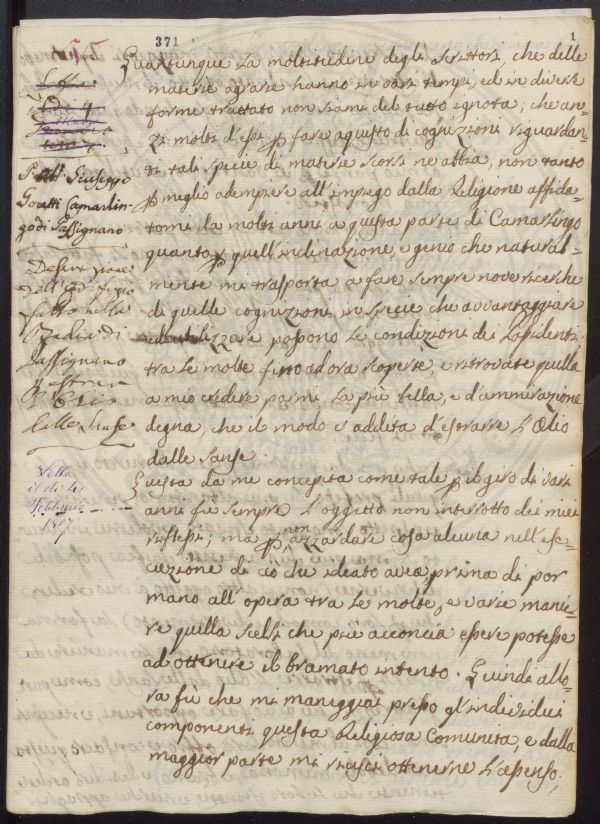 371
1
Quantunque la moltitudine degli Scrittori, che delle
materie agrarie hanno in varj tempi, ed in diverse
forme trattato non siami del tutto ignota; che an=
zi molti d'essi p fare acquisto di cognizioni riguardan=
ti tali specie di materie scorsi ne abbia, non tanto
p meglio adempiere all'impiego dalla Religione affida=
tomi da molti anni a questa parte di Camarlingo
quanto p quell'inclinazione, e genio che natural=
mente mi trasporta a fare sempre nove ricerche
di quelle cognizioni in specie che avvantaggiare
ed utilizzare possono le condizioni dei Possidenti
tra le molte fino ad ora scoperte, e ritrovate quella
a mio credere parmi la più bella, e d'ammirazione
degna, che il modo s'addita d'estrarre l'Olio
dalle Sanse.
Questa da me concepita come tale p il giro di varj
anni fù sempre l'oggetto non interrotto dei miei
riflessi; ma p non azzardare cosa alcuna nell'ese=
cuzione di ciò che ideato avea, prima di por
mano all'opera tra le molte, e varie manie=
re quella scelsi che più acconcia essere potesse
ad ottenere il bramato intento. Quindi allo=
ra fù che mi maneggiai presso gl'individui
componenti questa Religiosa Comunità, e dalla
maggior parte mi riuscì ottenerne l'assenso;
Giuseppe
Goretti Camarlin=
go di Passignano
Descrizione
dell'Edifizio
fatto nella
Badia di
Passignano
p estrarre
l'Olio
dalle Sanse
Letta
il dì
Febbraio
1807